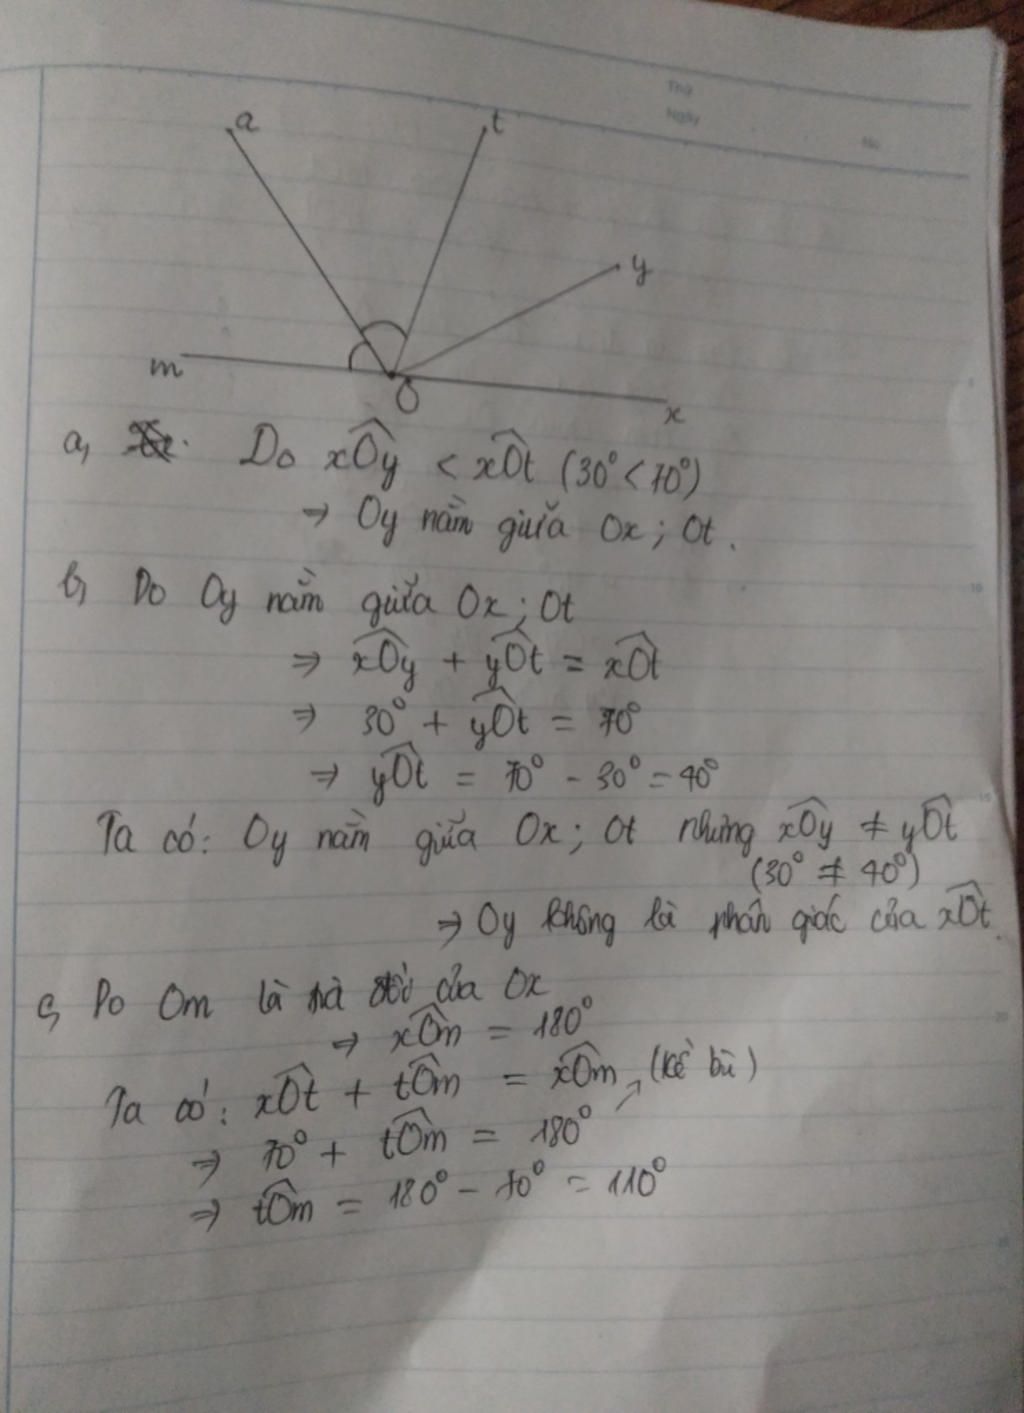 Thứ
Ngày
No
a
t
y
m
O
x
a, Do xÔy < xÔt (30° < 70°)
⇒ Oy nằm giữa Ox; Ot.
b, Do Oy nằm giữa Ox; Ot
⇒ xÔy + yÔt = xÔt
⇒ 30° + yÔt = 70°
⇒ yÔt = 70° - 30° = 40°
Ta có: Oy nằm giữa Ox; Ot nhưng xÔy ≠ yÔt
(30° ≠ 40°)
⇒ Oy không là phân giác của xÔt.
c, Do Om là tia đối của Ox
⇒ xÔm = 180°
Ta có: xÔt + tÔm = xÔm (kề bù)
⇒ 70° + tÔm = 180°
⇒ tÔm = 180° - 70° = 110°